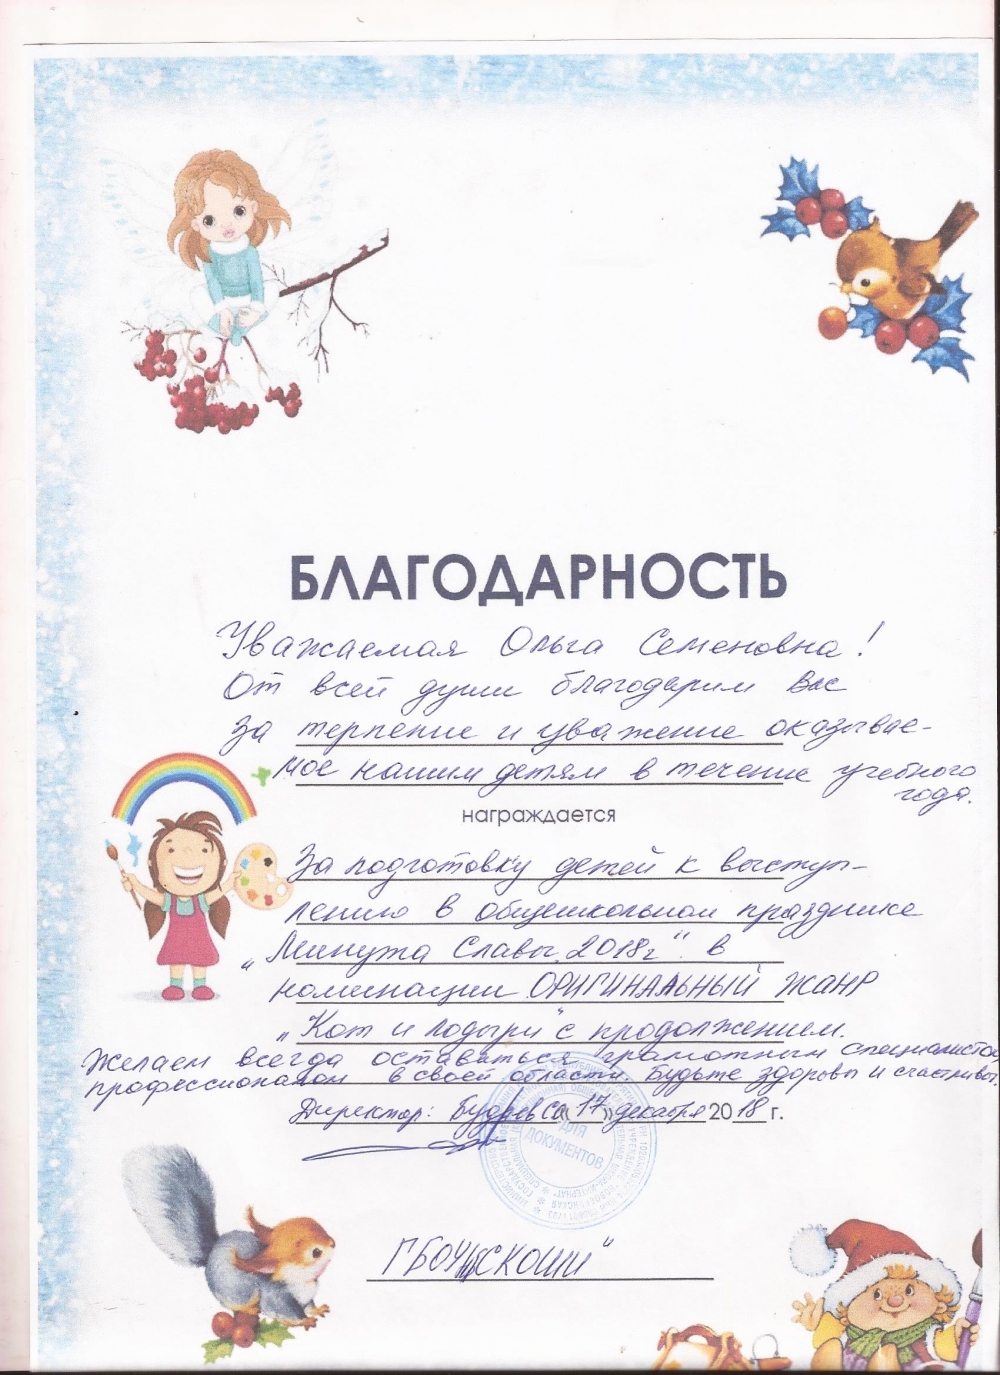 БЛАГОДАРНОСТЬ
Уважаемая Ольга Семеновна!
От всей души благодарим Вас
за терпение и уважение оказывае-
мое нашим детям в течение учебного
года.
награждается
За подготовку детей к выступ-
лению в общешкольном празднике
„Минута Славы 2018г“ в
номинации ОРИГИНАЛЬНЫЙ ЖАНР
„Кот и лодыри“ с продолжением.
Желаем всегда оставаться грамотным специалистом
профессионалом в своей области. Будьте здоровы и счастливы.
Директор: «17» декабря 2018 г.
ДЛЯ
ДОКУМЕНТОВ